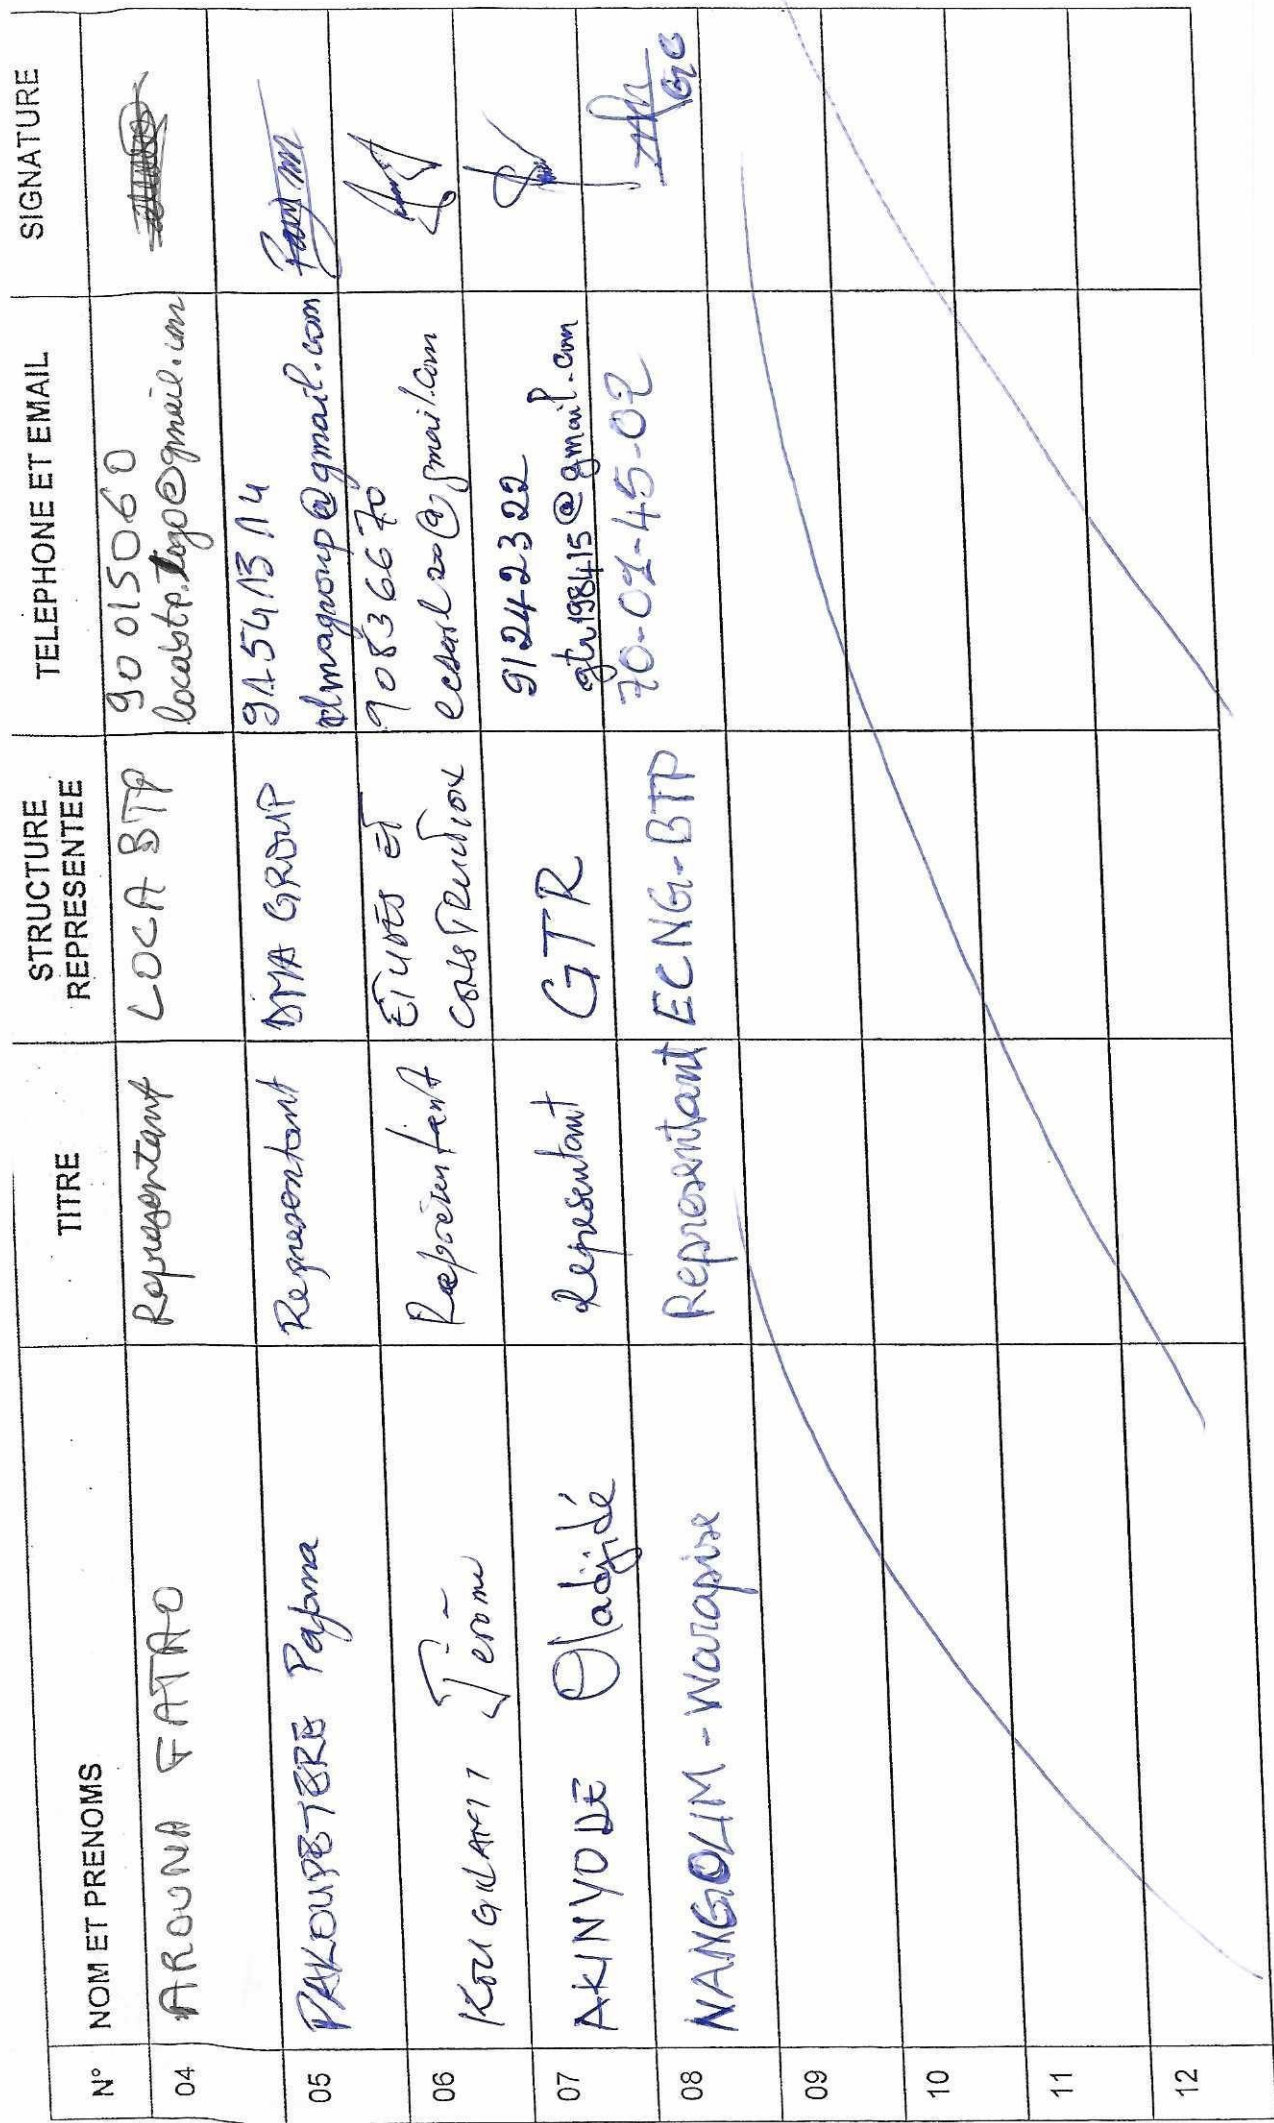 N° NOM ET PRENOMS TITRE STRUCTURE REPRESENTEE TELEPHONE ET EMAIL SIGNATURE
04 AROUNA FATAO Representant LOCA BTP 90 015060
locabtp.togo@gmail.com
05 PAKOUPETERE Representant DMA GROUP 91541314
dmagroup@gmail.com
06 Jerome Représentant ETUDES ET 90836670
CONSTRUCTION ecsarl20@gmail.com
07 AKINYODE Oladjidé Representant GTR 91242322
gtr198415@gmail.com
08 NANGOLIM - Warapise Representant ECNG-BTP 70-01-45-02
09
10
11
12